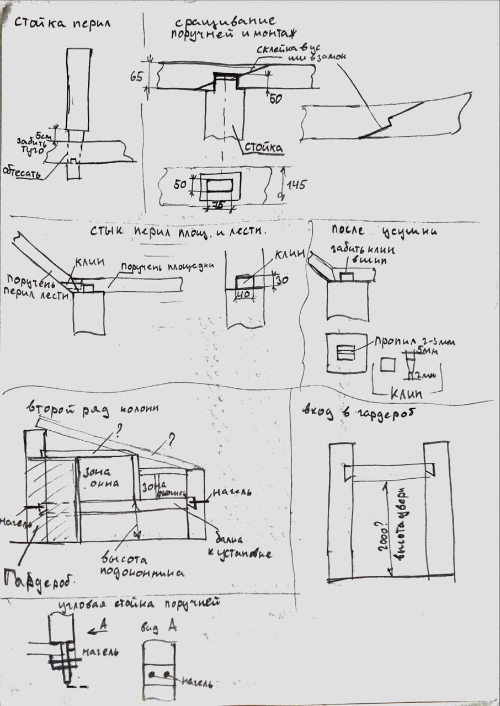 стойка перил
5см
забить
туго
обтесать
сращивание
поручней и монтаж
склейка в ус
или в замок
65
50
стойка
50
75
145
стык перил площ. и лестн.
клин
поручень площадки
поручень
перил лестн
клин
40
30
после усушки
забить клин
в шип
пропил 2-3мм
5мм
2мм
клин
второй ряд колонн
?
?
зона
окна
зона
нагель
нагель
балка
к установке
высота
подоконника
Гардероб.
вход в гардероб
2000?
высота двери
угловая стойка поручней
А
нагель
вид А
нагель